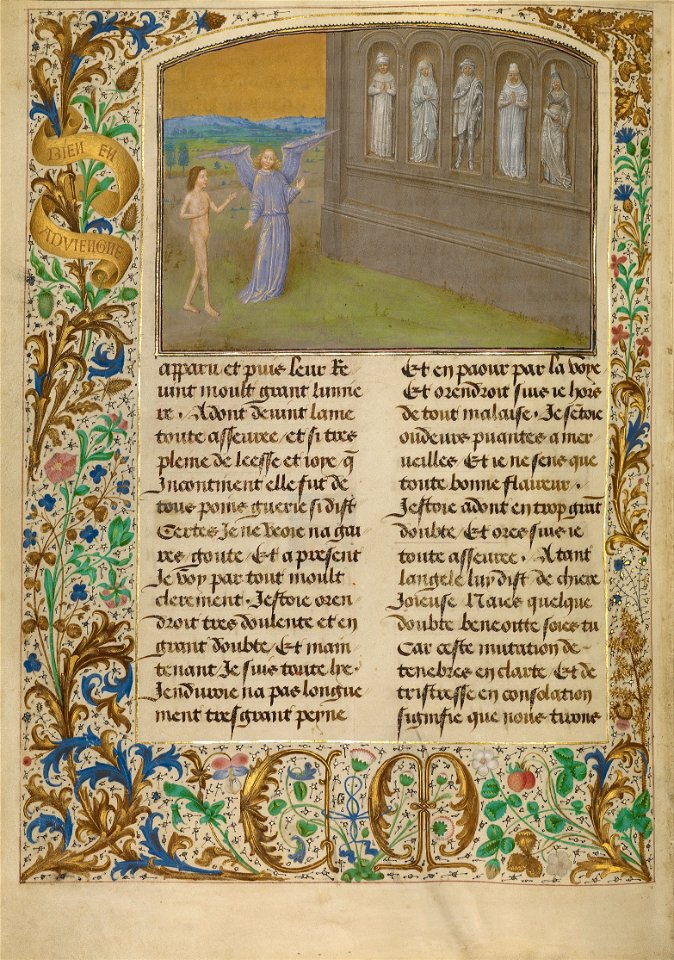 BIEN EN
ADVIENGNE
apparu et puis leur Re
uint moult grant lumie
re. Adont deuint lame
toute asseuree / et si tres
pleine de leesse et ioye / q̄
Incontinent elle fut de
tous poins guerie si dist
Certes Je ne veoie na gai
res / goute / Et a present
Je voy par tout moult
clerement. Jestoie oren
droit tres doulente et en
grant doubte / Et main
tenant Je suis toute lye.
Jenduroie na pas longue
ment tresgrant peyne
Et en paour par la voye
Et orendroit suis ie hors
de tout malaise. Je sētoie
oudeurs puantes a mer
ueilles Et ie ne sens que
toute bonne flaireur.
Jestoie adont en trop grāt
doubte / Et ores suis ie
toute asseuree. A tant
langele luy dist de chiere
Joieuse Naies quelque
doubte benoitte soies tu
Car ceste mutation de
tenebres en clarte / Et de
tristresse en consolation
signifie que nous tirons
C M